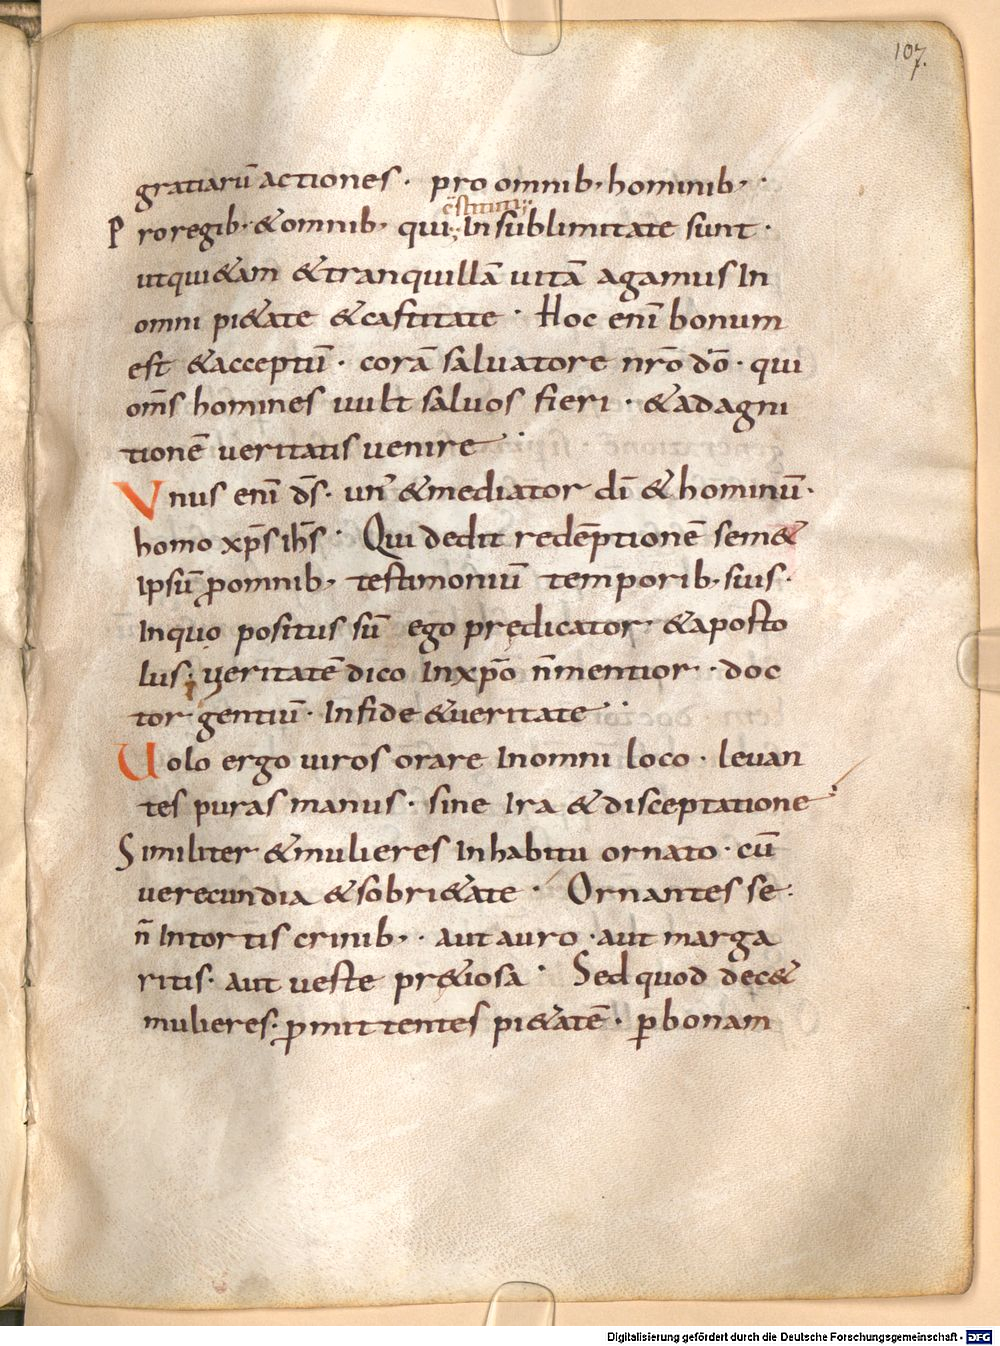 107.
gratiarū actiones · pro omnib, hominib, ·
c̄stituti
P roregib, &omnib, qui In sublimitate sunt ·
utqui&am &tranquillā uitā agamus In
omni pi&ate &castitate · Hoc enī bonum
est &acceptū · corā saluatore nr̄o dō · qui
om̄s homines uult saluos fieri · &adagni
tionē ueritatis uenire ·
Vnus enī ds̄ · un' &mediator dī &hominū ·
homo xp̄s ih̄s · Qui dedit redēptionē sem&
Ipsū ꝓomnib, testimoniū temporib, suis ·
Inquo positus sū ego predicator · &aposto
lus · ueritatē dico Inxp̄o n̄mentior · · doc
tor gentiū · Infide &ueritate ·
Uolo ergo uiros orare Inomni loco · leuan
tes puras manus · sine Ira &disceptatione
Similiter &mulieres Inhabitu ornato · cū
uerecundia &sobri&ate · Ornantes se ·
n̄ Intortis crinib, · aut auro · aut marga
ritis · aut ueste pr&iosa · Sed quod dec&
mulieres · ꝓmittentes pi&atē · ꝑbonam
Digitalisierung gefördert durch die Deutsche Forschungsgemeinschaft - DFG